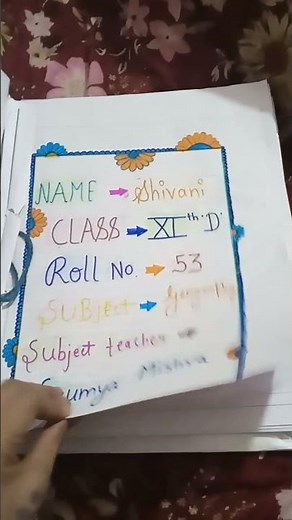 NAME → Shivani
CLASS → XIth 'D'
Roll No. → 53
SUBJECT → Geography
Subject teacher →
Soumya Mishra